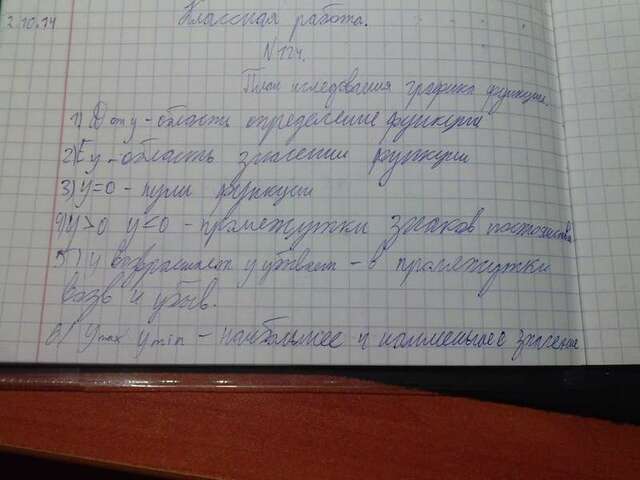 2.10.14
Классная работа.
N 124.
План иследования графика функции.
1) D от y - область определение функции
2) E y - область значении функции
3) y=0 - нули функции
4) y>0 y<0 - промежутки знаков постоянства
5) y возрастает y убывает - в промежутки
возв и убыв.
6) y max y min - наибольшее и наименьшее значение